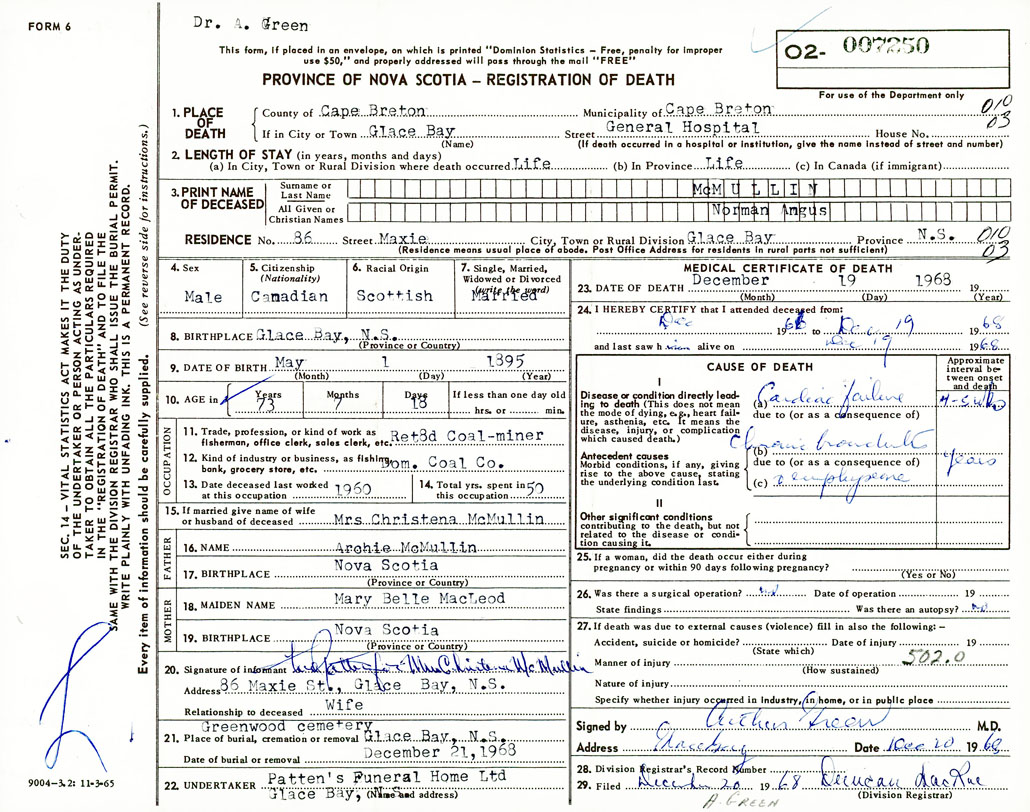 FORM 6
Dr. A. Green
This form, if placed in an envelope, on which is printed "Dominion Statistics – Free, penalty for improper
use $50," and properly addressed will pass through the mail "FREE"
PROVINCE OF NOVA SCOTIA – REGISTRATION OF DEATH
O2- 007250
For use of the Department only
SEC. 14 – VITAL STATISTICS ACT MAKES IT THE DUTY
OF THE UNDERTAKER OR PERSON ACTING AS UNDER-
TAKER TO OBTAIN ALL THE PARTICULARS REQUIRED
IN THE "REGISTRATION OF DEATH" AND TO FILE THE
SAME WITH THE DIVISION REGISTRAR WHO SHALL ISSUE THE BURIAL PERMIT.
WRITE PLAINLY WITH UNFADING INK. THIS IS A PERMANENT RECORD.
Every item of information should be carefully supplied. (See reverse side for instructions.)
9004–3.2: 11-3-65
1. PLACE OF DEATH
County of Cape Breton Municipality of Cape Breton 010
If in City or Town Glace Bay Street General Hospital House No. 03
(Name) (If death occurred in a hospital or institution, give the name instead of street and number)
2. LENGTH OF STAY (in years, months and days)
(a) In City, Town or Rural Division where death occurred Life (b) In Province Life (c) In Canada (if immigrant)
3. PRINT NAME OF DECEASED
Surname or Last Name McMULLIN
All Given or Christian Names Norman Angus
RESIDENCE No. 86 Street Maxie City, Town or Rural Division Glace Bay Province N.S. 010
(Residence means usual place of abode. Post Office Address for residents in rural parts not sufficient) 03
4. Sex
Male
5. Citizenship
(Nationality)
Canadian
6. Racial Origin
Scottish
7. Single, Married,
Widowed or Divorced
(write the word)
Married
8. BIRTHPLACE Glace Bay, N.S.
(Province or Country)
9. DATE OF BIRTH May 1 1895
(Month) (Day) (Year)
10. AGE in Years Months Days If less than one day old
73 7 18 hrs. or min.
OCCUPATION
11. Trade, profession, or kind of work as
fisherman, office clerk, sales clerk, etc. Ret8d Coal-miner
12. Kind of industry or business, as fishing,
bank, grocery store, etc. Dom. Coal Co.
13. Date deceased last worked
at this occupation 1960
14. Total yrs. spent in
this occupation 50
15. If married give name of wife
or husband of deceased Mrs Christena McMullin
FATHER
16. NAME Archie McMullin
17. BIRTHPLACE Nova Scotia
(Province or Country)
MOTHER
18. MAIDEN NAME Mary Belle MacLeod
19. BIRTHPLACE Nova Scotia
(Province or Country)
20. Signature of informant Patten for Mrs Christena McMullin
Address 86 Maxie St., Glace Bay, N.S.
Relationship to deceased Wife
Greenwood cemetery
21. Place of burial, cremation or removal Glace Bay, N.S.
Date of burial or removal December 21, 1968
22. UNDERTAKER Patten's Funeral Home Ltd
Glace Bay, N.S. (Name and address)
MEDICAL CERTIFICATE OF DEATH
23. DATE OF DEATH December 19 1968 19
(Month) (Day) (Year)
24. I HEREBY CERTIFY that I attended deceased from:
Dec 19 to Dec 19 1968
and last saw him alive on Dec 19 1968
CAUSE OF DEATH
Approximate
interval be-
tween onset
and death
I
Disease or condition directly lead-
ing to death (This does not mean
the mode of dying, e.g., heart fail-
ure, asthenia, etc. It means the
disease, injury, or complication
which caused death.)
(a) Cardiac failure 4-5 wks
due to (or as a consequence of)
Antecedent causes
Morbid conditions, if any, giving
rise to the above cause, stating
the underlying condition last.
(b) Chronic bronchitis years
due to (or as a consequence of)
(c) & emphysema
II
Other significant conditions
contributing to the death, but not
related to the disease or condi-
tion causing it.
25. If a woman, did the death occur either during
pregnancy or within 90 days following pregnancy?
(Yes or No)
26. Was there a surgical operation? no Date of operation 19
State findings Was there an autopsy? no
27. If death was due to external causes (violence) fill in also the following: –
Accident, suicide or homicide? Date of injury 19
(State which)
Manner of injury 502.0
(How sustained)
Nature of injury
Specify whether injury occurred in Industry, in home, or in public place
Signed by Arthur Green M.D.
Address Glace Bay Date Dec 20 1968
28. Division Registrar's Record Number
29. Filed December 20 1968 Duncan MacRae
(Division Registrar)
A. GREEN